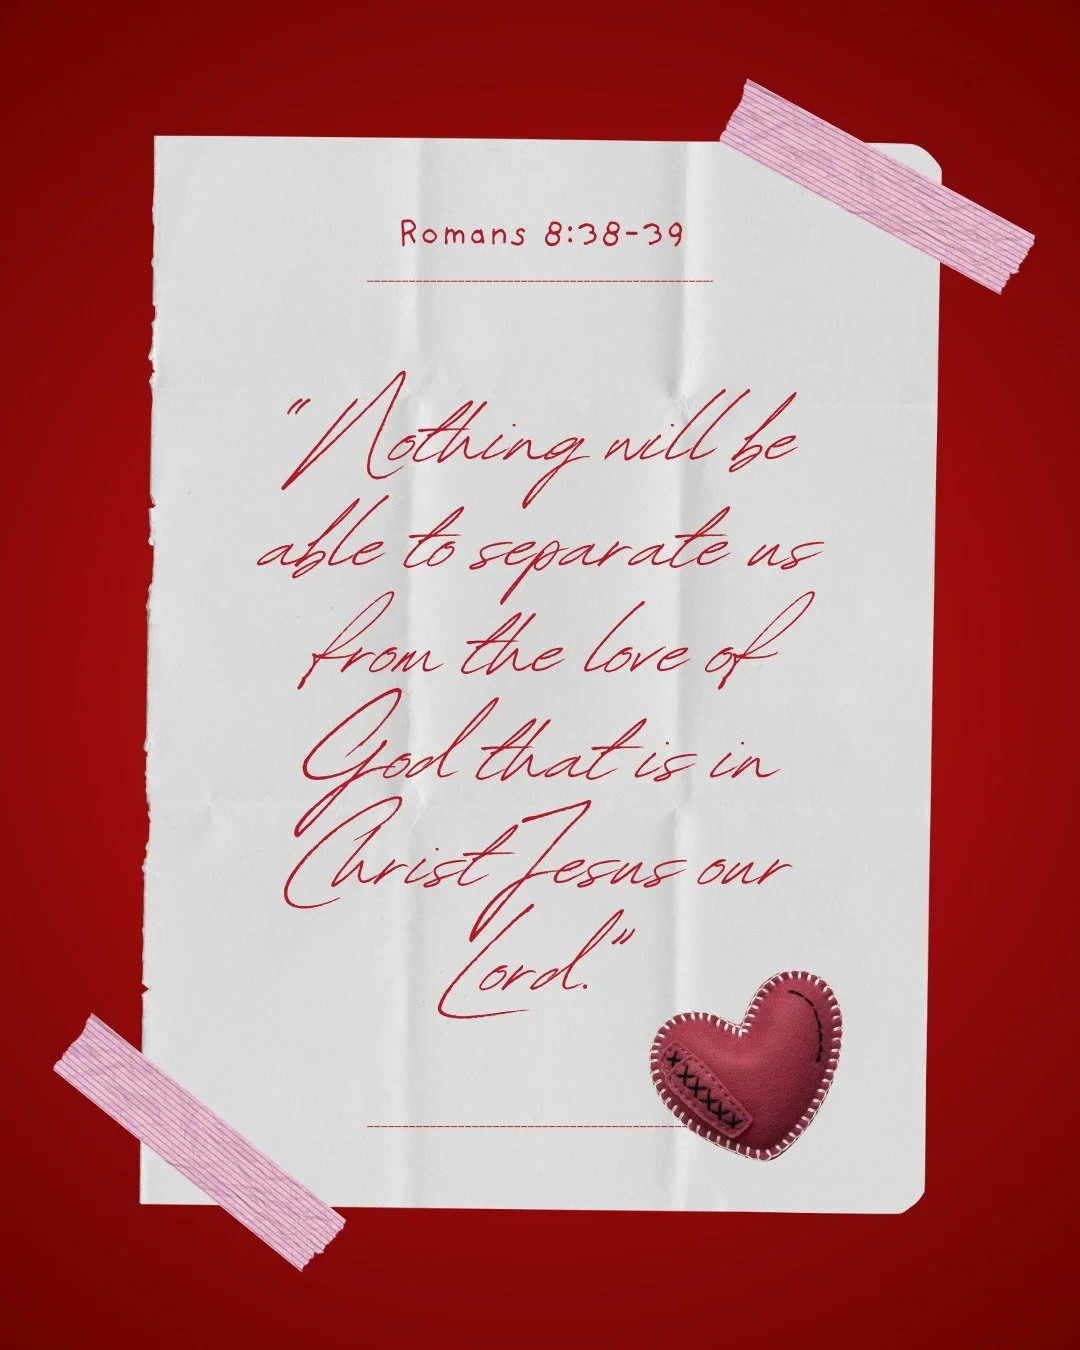 Romans 8:38-39
"Nothing will be
able to separate us
from the love of
God that is in
Christ Jesus our
Lord."